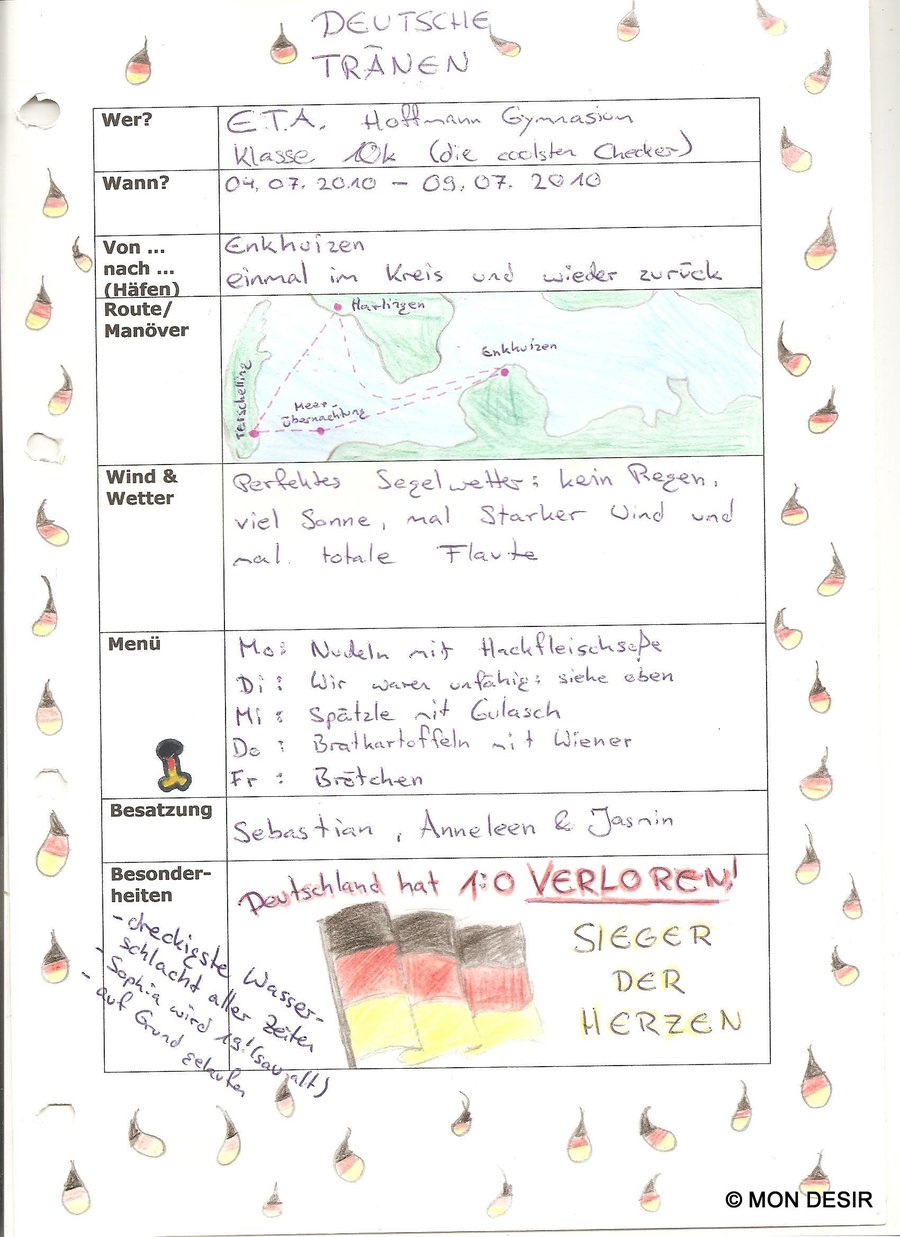 DEUTSCHE
TRÄNEN
Wer?
E.T.A. Hoffmann Gymnasium
Klasse 10k (die coolsten Checker)
Wann?
04.07.2010 – 09.07.2010
Von ...
nach ...
(Häfen)
Enkhuizen
einmal im Kreis und wieder zurück
Route/
Manöver
Harlingen
Enkhuizen
Terschelling
Meer-
übernachtung
Wind &
Wetter
Perfektes Segelwetter: kein Regen,
viel Sonne, mal Starker Wind und
mal totale Flaute
Menü
Mo: Nudeln mit Hackfleischsoße
Di: Wir waren unfähig: siehe oben
Mi: Spätzle mit Gulasch
Do: Bratkartoffeln mit Wiener
Fr: Brötchen
Besatzung
Sebastian, Anneleen & Jasmin
Besonder-
heiten
Deutschland hat 1:0 VERLOREN!
SIEGER
DER
HERZEN
- dreckigste Wasser-
schlacht aller Zeiten
- Sophia wird 19! (sau alt)
- auf Grund gelaufen
© MON DESIR